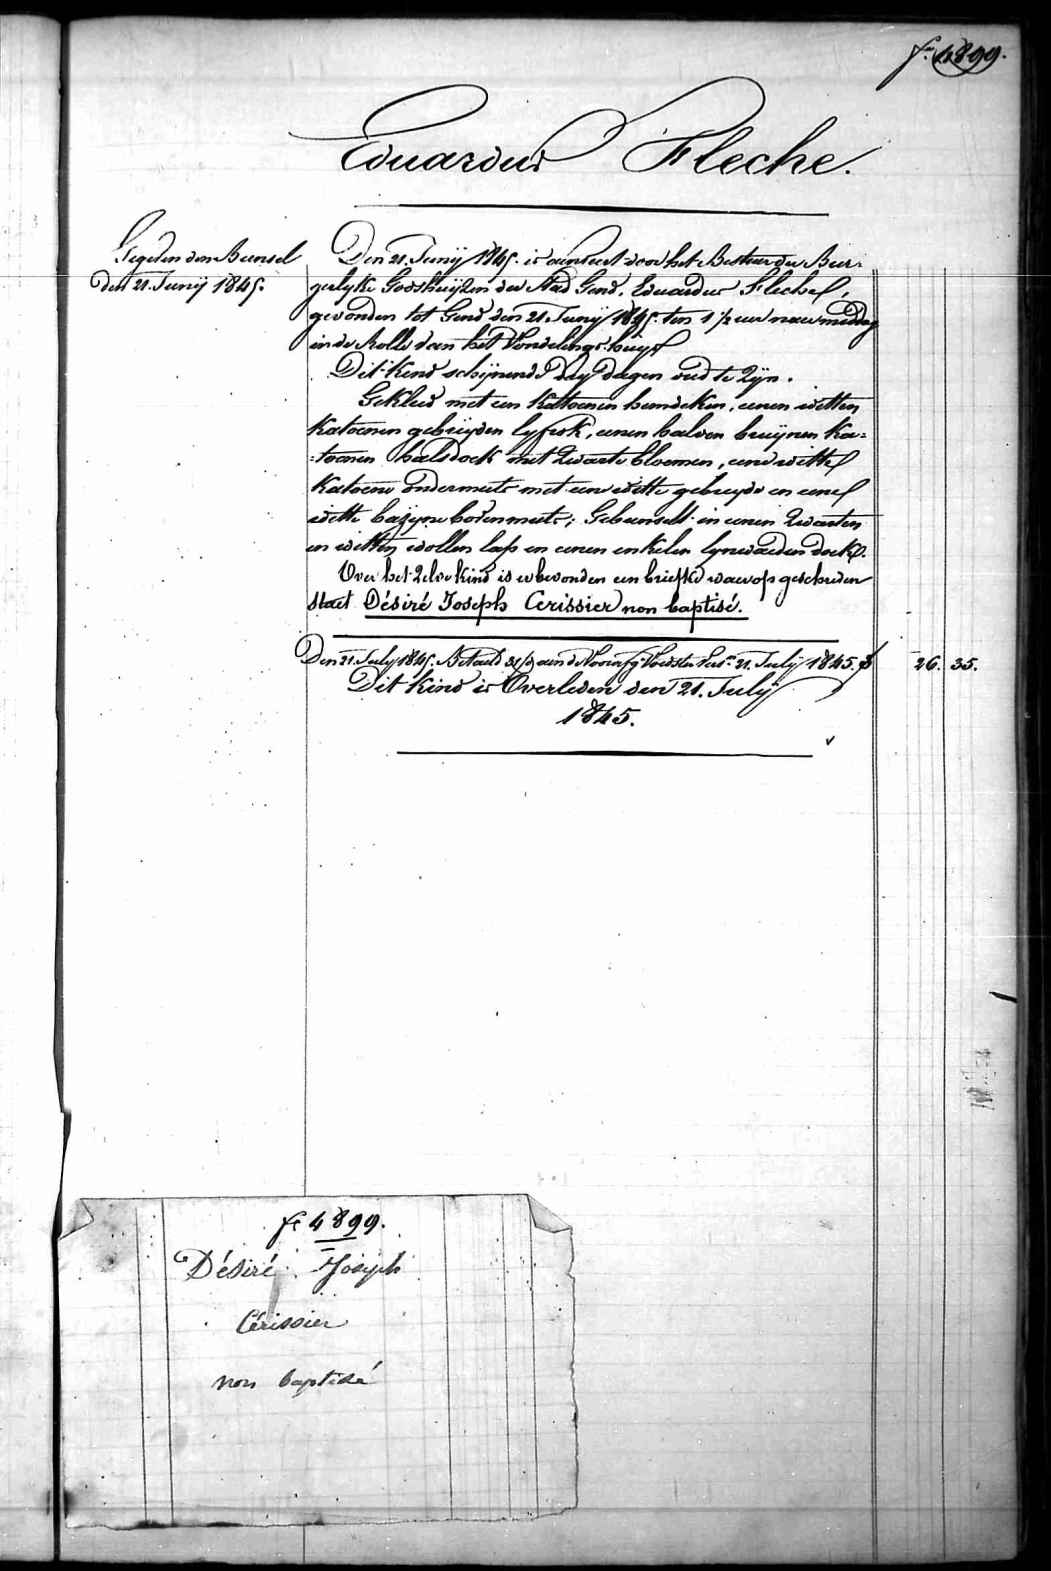 fo. 4899.
Eduardus Fleche.
Gegeven den Bunsel
den 21. Junij 1845.
Den 21. Junij 1845. is aenveert door het Bestuer der Bur-
gerlyke Godshuijzen der Stad Gend, Eduardus Fleche,
gevonden tot Gend den 21. Junij 1845. ten 1 1/2 uer naermiddag
in de Rolle van het Vondelings-huijs
Dit kind schijnende dry dagen oud te zijn.
Gekleed met een Kattoenen hemdeken, eenen witten
Katoenen gebreyden lyfrok, eenen halven bruijnen Ka=
=toenen halsdoek met zwarte bloemen, eene witte
Katoene ondermuts met eene witte gebreyde en eene
witte bazyne bovenmuts; Gebunselt in eenen zwarten
en witten wollen lap en eenen enkelen lynwaeden doek.
Over het zelve kind is er bevonden een briefke waerop geschreven
staet Désiré Joseph Cerissier non baptisé.
Den 21. July 1845. Betaeld aen de Voedster 21. July 1845. 26. 35.
Dit kind is Overleden den 21. Julij
1845.
fo 4899.
Désiré Joseph
Cérissier
non baptisé